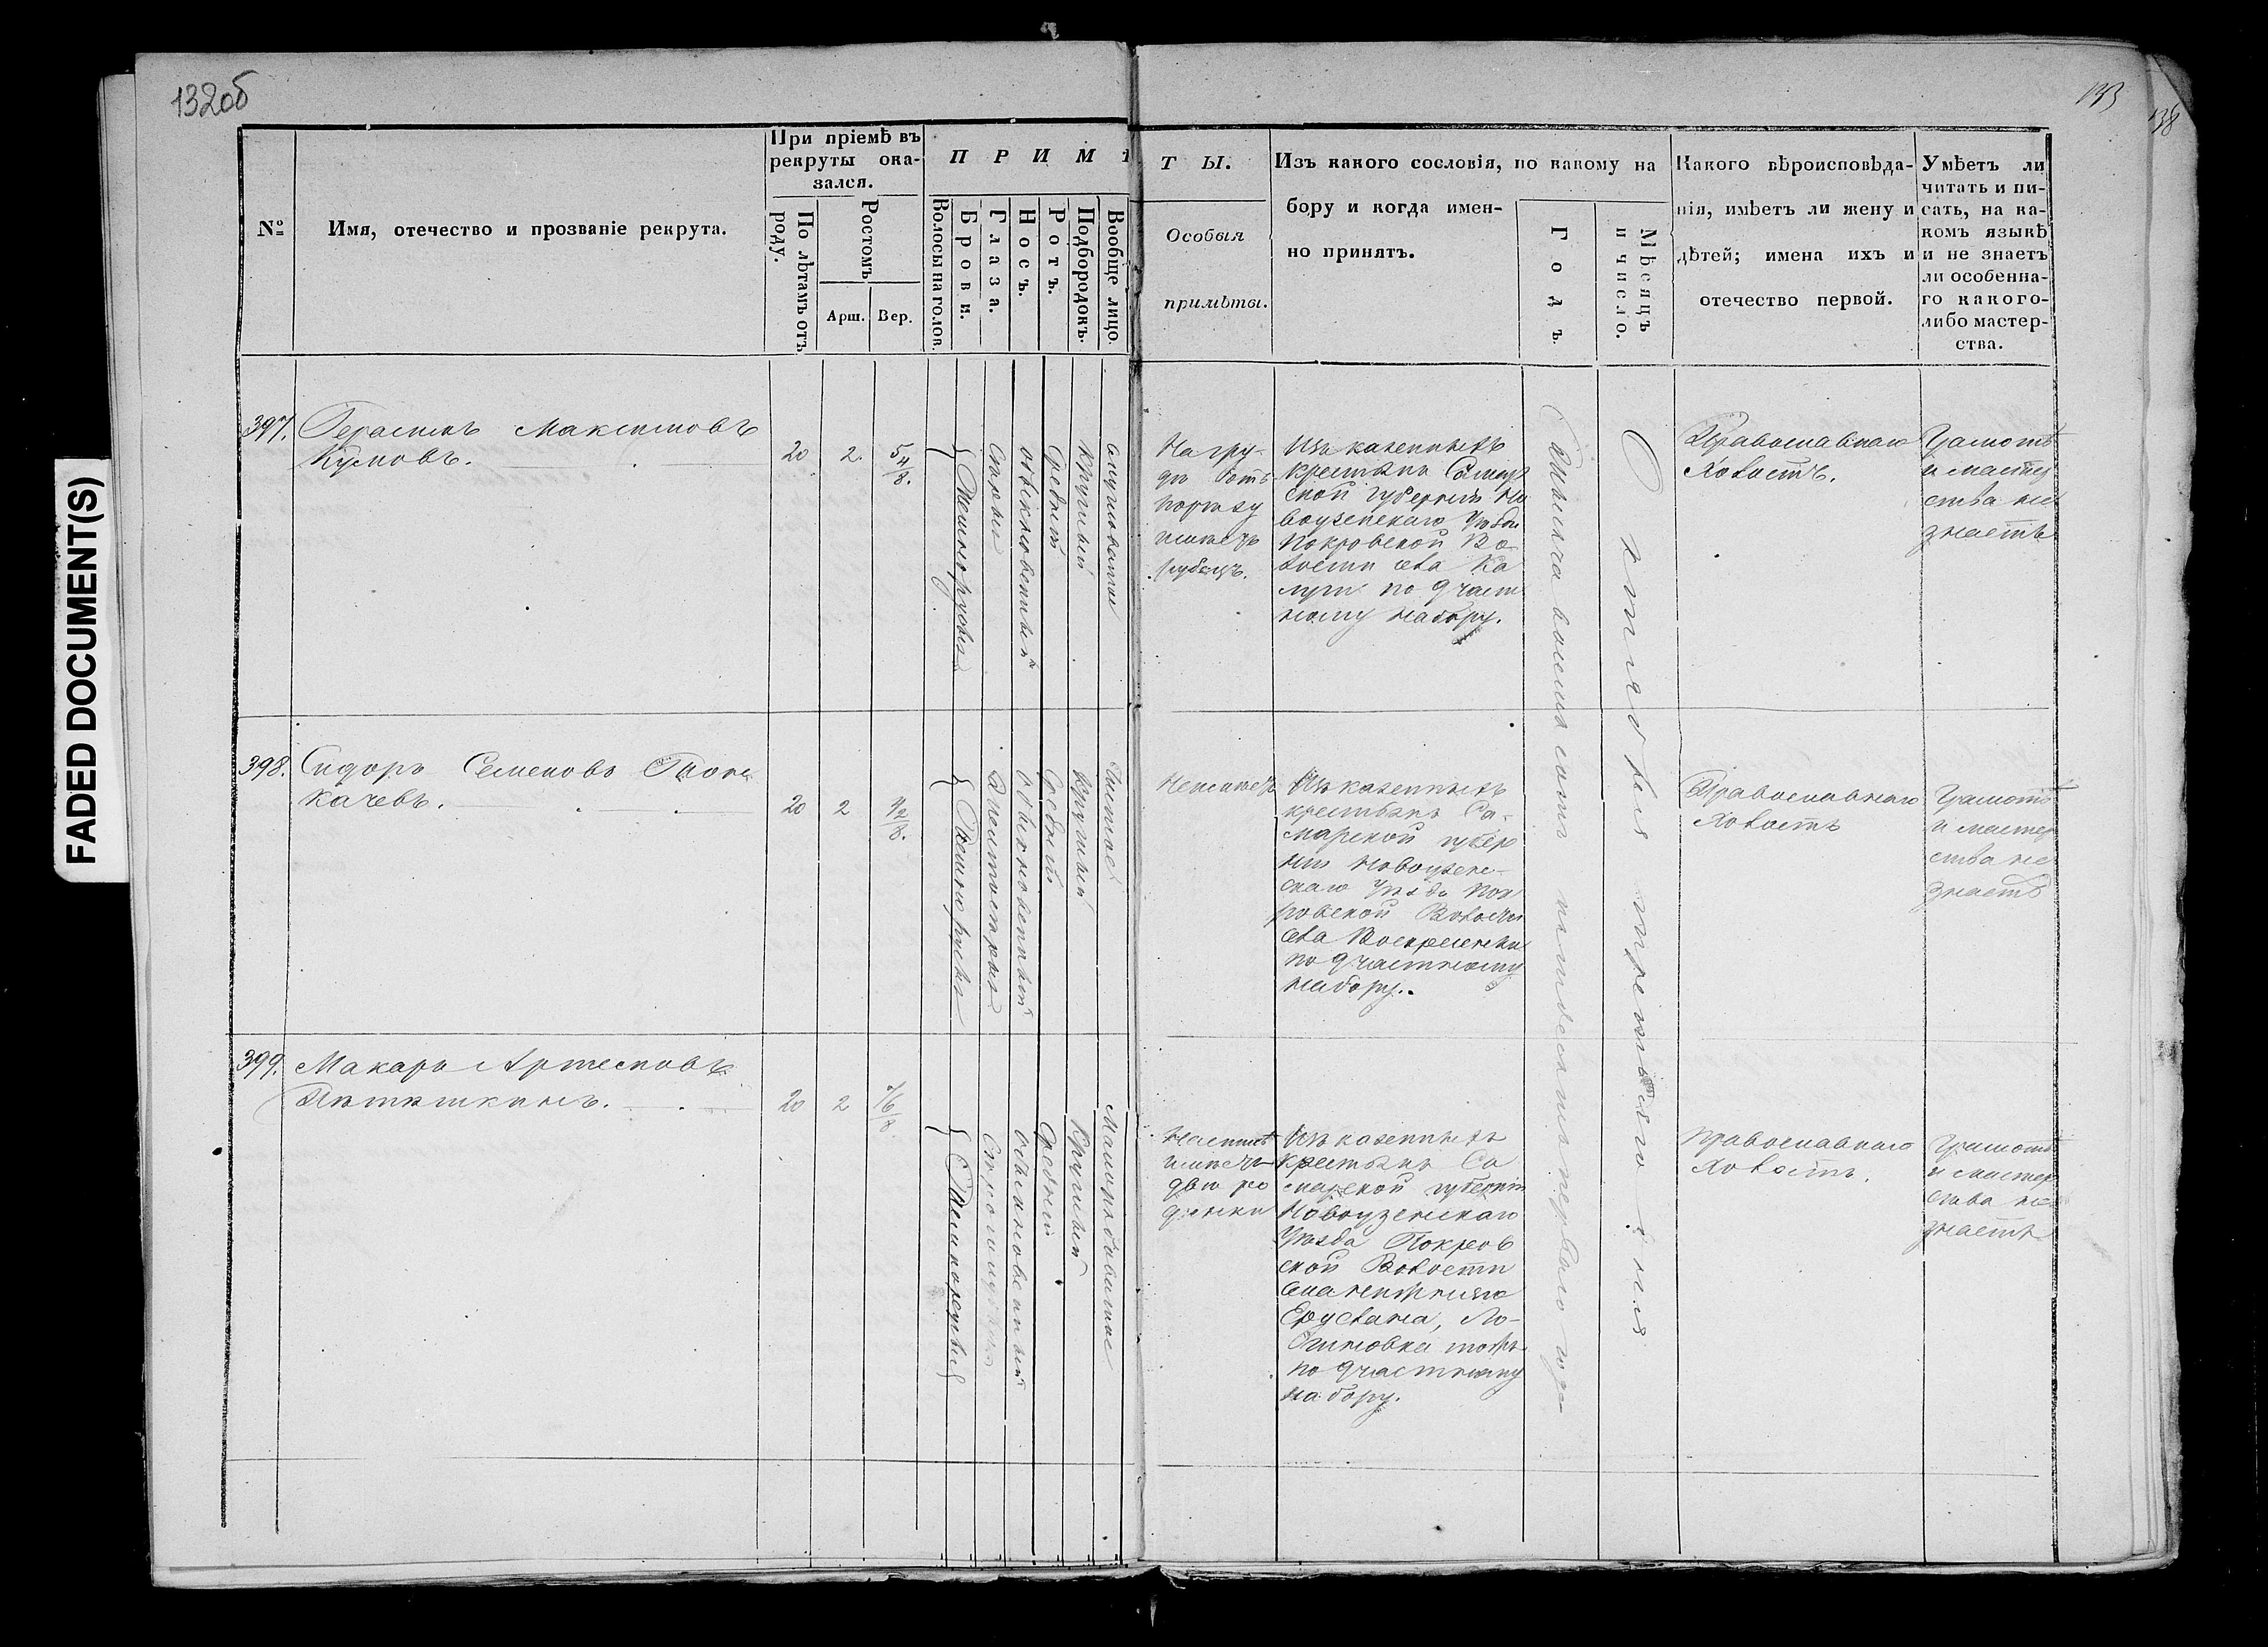 132об
133
138
FADED DOCUMENT(S)
№
Имя, отечество и прозваніе рекрута.
При пріемѣ въ
рекруты ока-
зался.
По лѣтамъ отъ
роду.
Ростомъ
Арш.
Вер.
ПРИМѢ
Волосы на голов.
Брови.
Глаза.
Носъ.
Ротъ.
Подбородокъ.
Вообще лицо.
ТЫ.
Особыя
примѣты.
Изъ какого сословія, по какому на
бору и когда имен-
но принятъ.
Годъ.
Мѣсяцъ
и число.
Какого вѣроисповѣда-
нія, имѣетъ ли жену и
дѣтей; имена ихъ и
отечество первой.
Умѣетъ ли
читать и пи-
сать, на ка-
комъ языкѣ
и не знаетъ
ли особенна-
го какого-
либо мастер-
ства.
397.
Герасимъ Максимовъ
Кумовъ.
20
2
5 4/8.
Темнорусыя
Сѣрые
обыкновенный
Средній
Круглый
смугловатое
На гру-
рубецъ.
Изъ казенныхъ
крестьянъ Самар
ской губерніи Но
воузенскаго Уѣзда
Покровской Во
лости села Ка
по 9 част
ному набору.
Тысяча восемьсотъ пятьдесятъ перваго года
Октября третьяго дня
Православнаго
Холостъ.
Грамотѣ
и мастер
ства не
знаетъ
398.
Сидоръ Семеновъ Толка
качевъ.
20
2
2/8.
Темнорусыя
обыкновенный
Средній
Круглый
Чистое
Неимѣетъ
Изъ казенныхъ
крестьянъ Са-
марской губер
ніи Новоузен-
скаго Уѣзда Пок
ровской Волости
села Воскресенки
по 9 частному
набору.
Православнаго
Холостъ
Грамотѣ
и мастер
ства не
знаетъ
399.
Макаръ Артемовъ
Пятышкинъ.
20
2
6/8
Темнорусыя
обыкновенный
Средній
Круглый
Малорябоватое
имѣетъ
двѣ ро
динки
Изъ казенныхъ
крестьянъ Са
марской губерніи
Новоузенскаго
Уѣзда Покров
ской Волости
Еруслана, Ло-
гиновка тожъ
по 9 частному
набору.
Православнаго
Холостъ.
Грамотѣ
и мастер
ства не
знаетъ